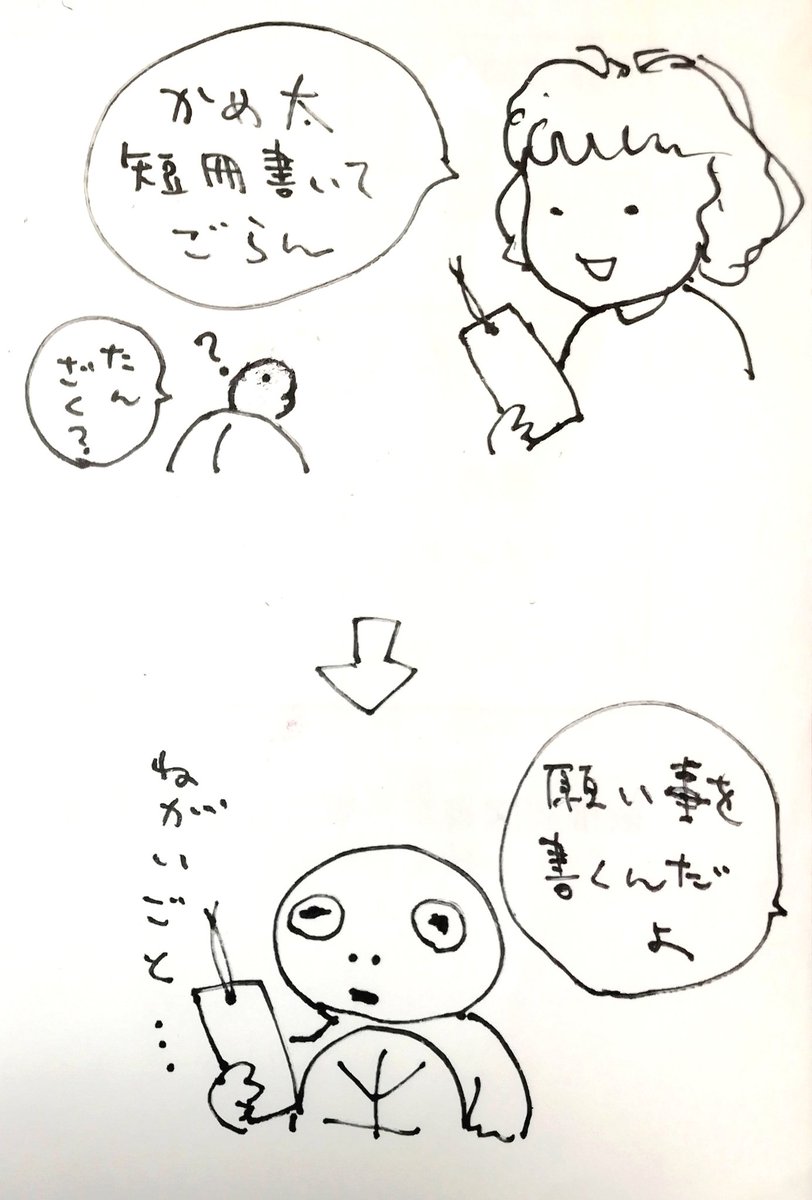 かめ太
短冊書いて
ごらん
?
たん
ざく?
願い事を
書くんだ
よ
ねがいごと…